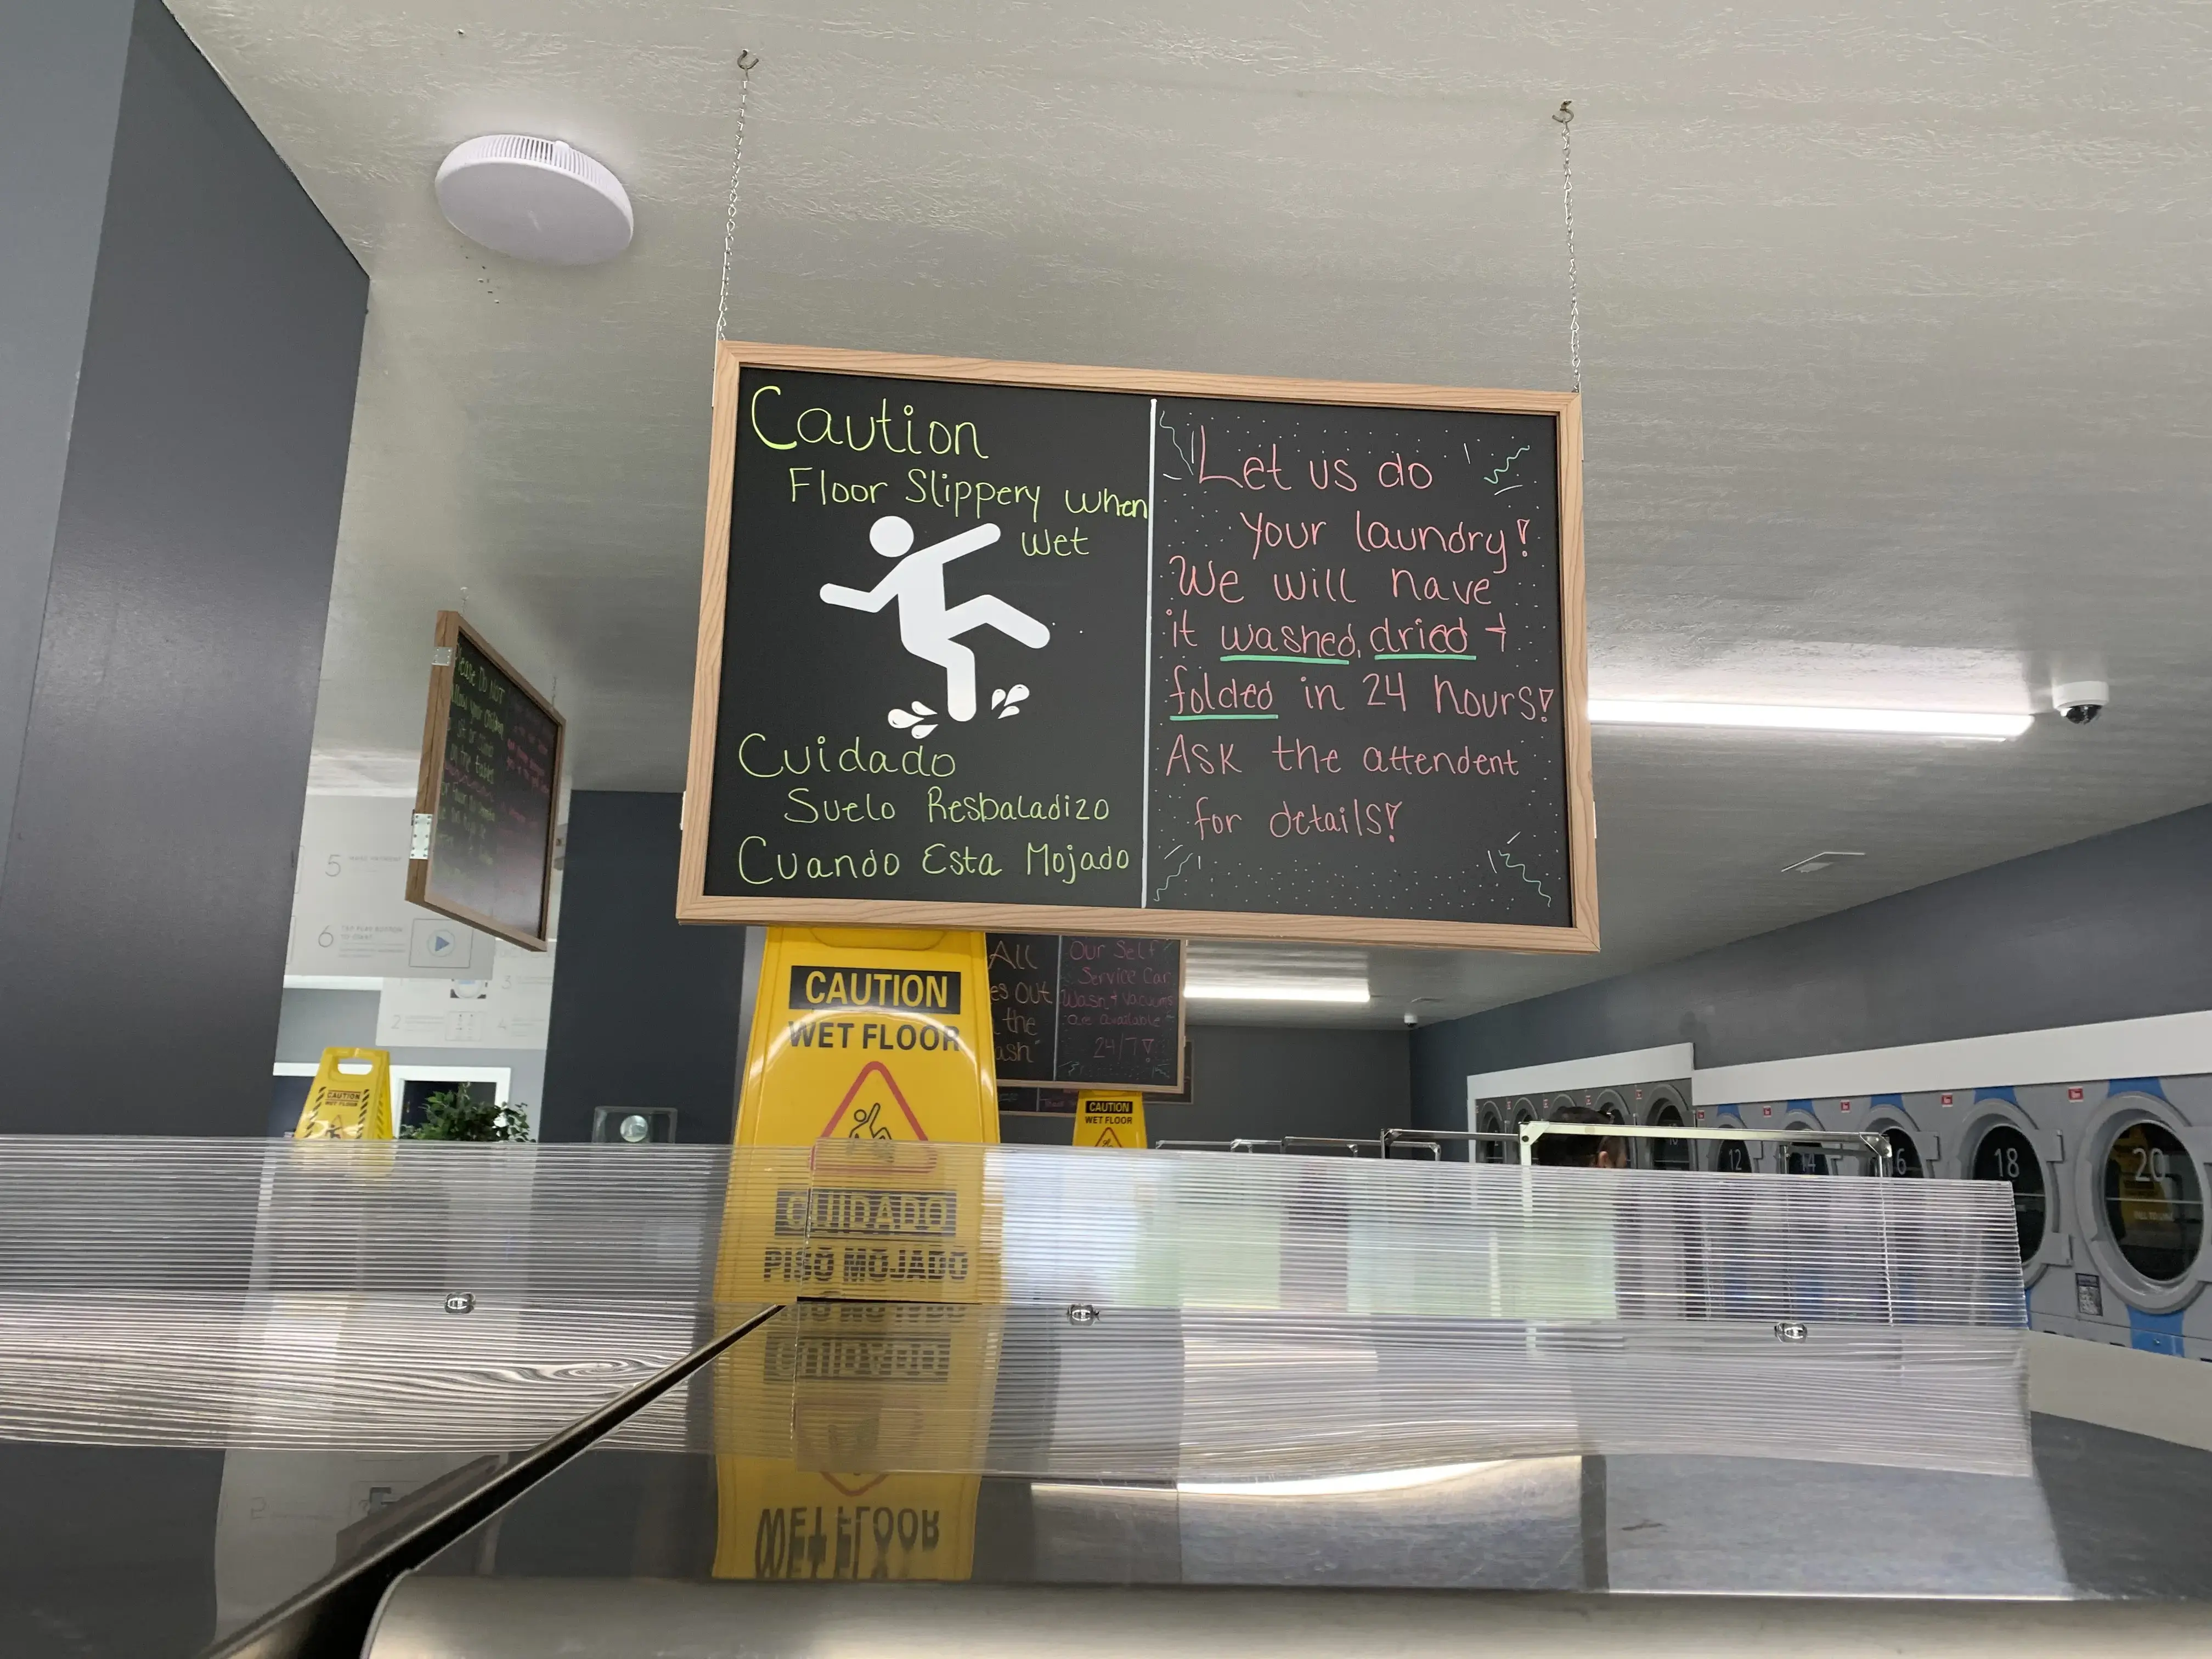 Caution
Floor Slippery When
Wet
Cuidado
Suelo Resbaladizo
Cuando Esta Mojado
Let us do
your laundry!
We will have
it washed, dried +
folded in 24 hours!
Ask the attendent
for details!
Please Do Not
Allow your children
5
6 TAP PLAY BUTTON
TO START
CAUTION
WET FLOOR
CUIDADO
PISO MOJADO
All
es out
the
ash"
Our Self
Service Car
Wash + Vacuums
are available
24/7!
CAUTION
WET FLOOR
CAUTION
WET FLOOR
2
3
4
12
14
16
18
20
WET FLOOR